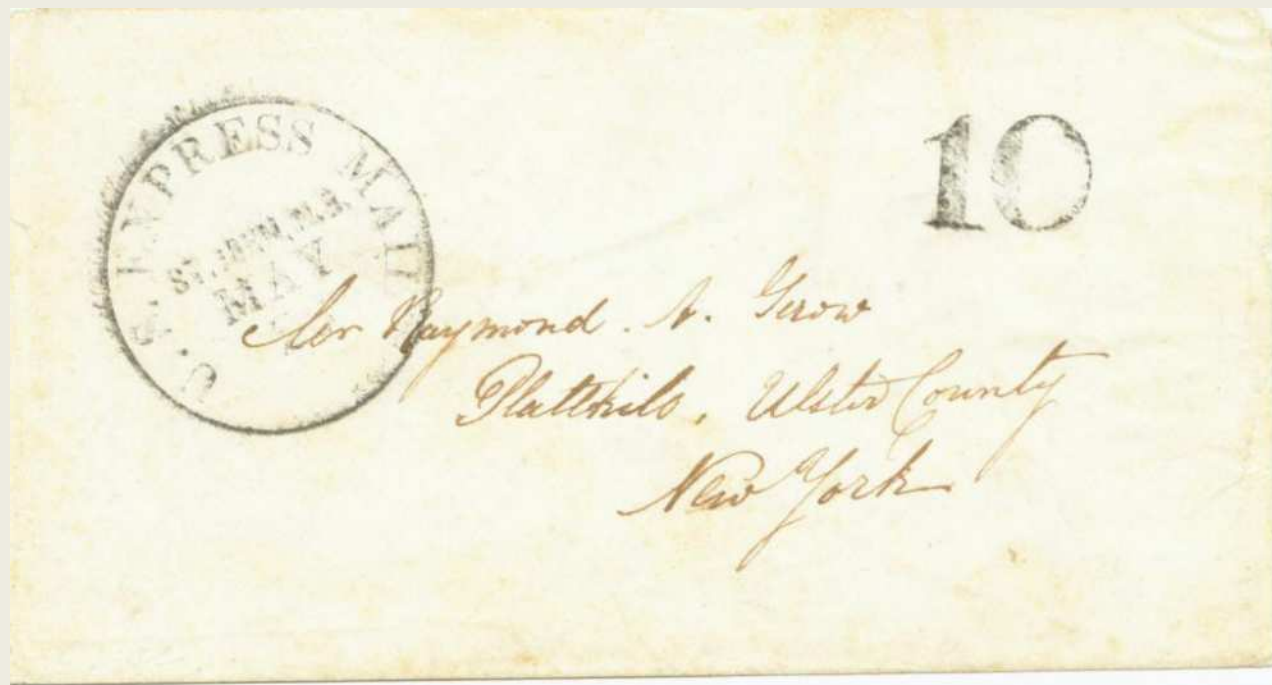 U.S. EXPRESS MAIL
ST. JOHN, N.B.
MAY
10
Raymond. A. Gerow
Plattkill, Ulster County
New York